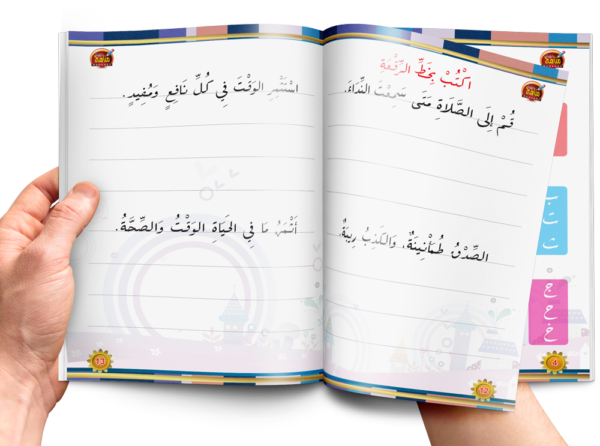 اكْتُبْ بِخَطِّ الرِّقْعَةِ
قُمْ إِلَى الصَّلَاةِ مَتَى سَمِعْتَ النِّدَاءَ.
الصِّدْقُ طُمَأْنِينَةٌ، وَالكَذِبُ رِيبَةٌ.
12
اسْتَثْمِرِ الوَقْتَ فِي كُلِّ نَافِعٍ وَمُفِيدٍ.
أَثْمَنُ مَا فِي الحَيَاةِ الوَقْتُ وَالصِّحَّةُ.
13
ب
ت
ث
ج
ح
خ
4